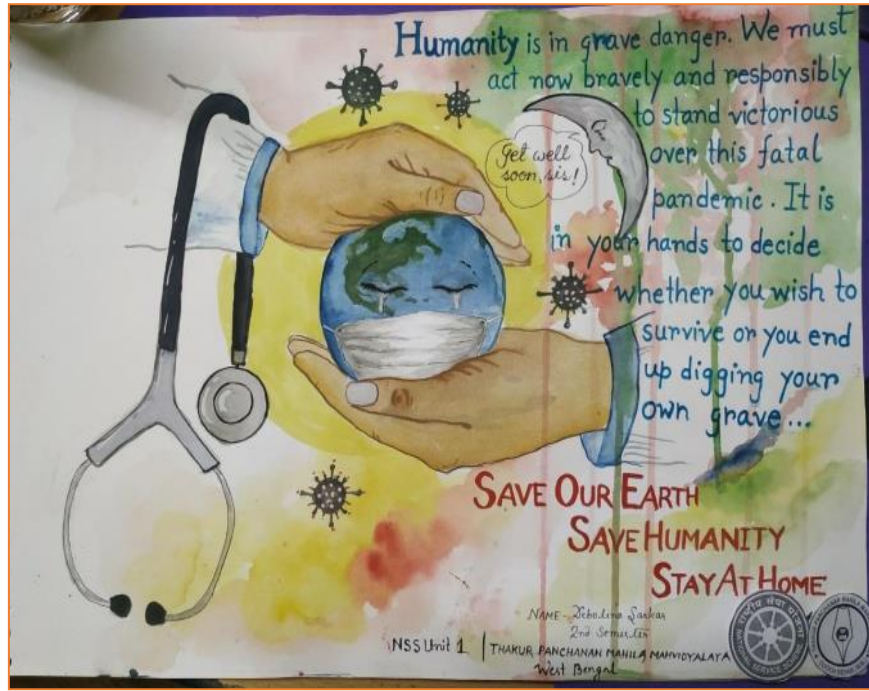 Humanity is in grave danger. We must
act now bravely and responsibly
to stand victorious
over this fatal
pandemic. It is
in your hands to decide
whether you wish to
survive or you end
up digging your
own grave...
Get well
soon, sis!
SAVE OUR EARTH
SAVE HUMANITY
STAY AT HOME
NAME - Debolina Sarkar
2nd Semester
NSS Unit 1 | THAKUR PANCHANAN MAHILA MAHVIDYALAYA
West Bengal
राष्ट्रीय सेवा योजना
NATIONAL SERVICE SCHEME